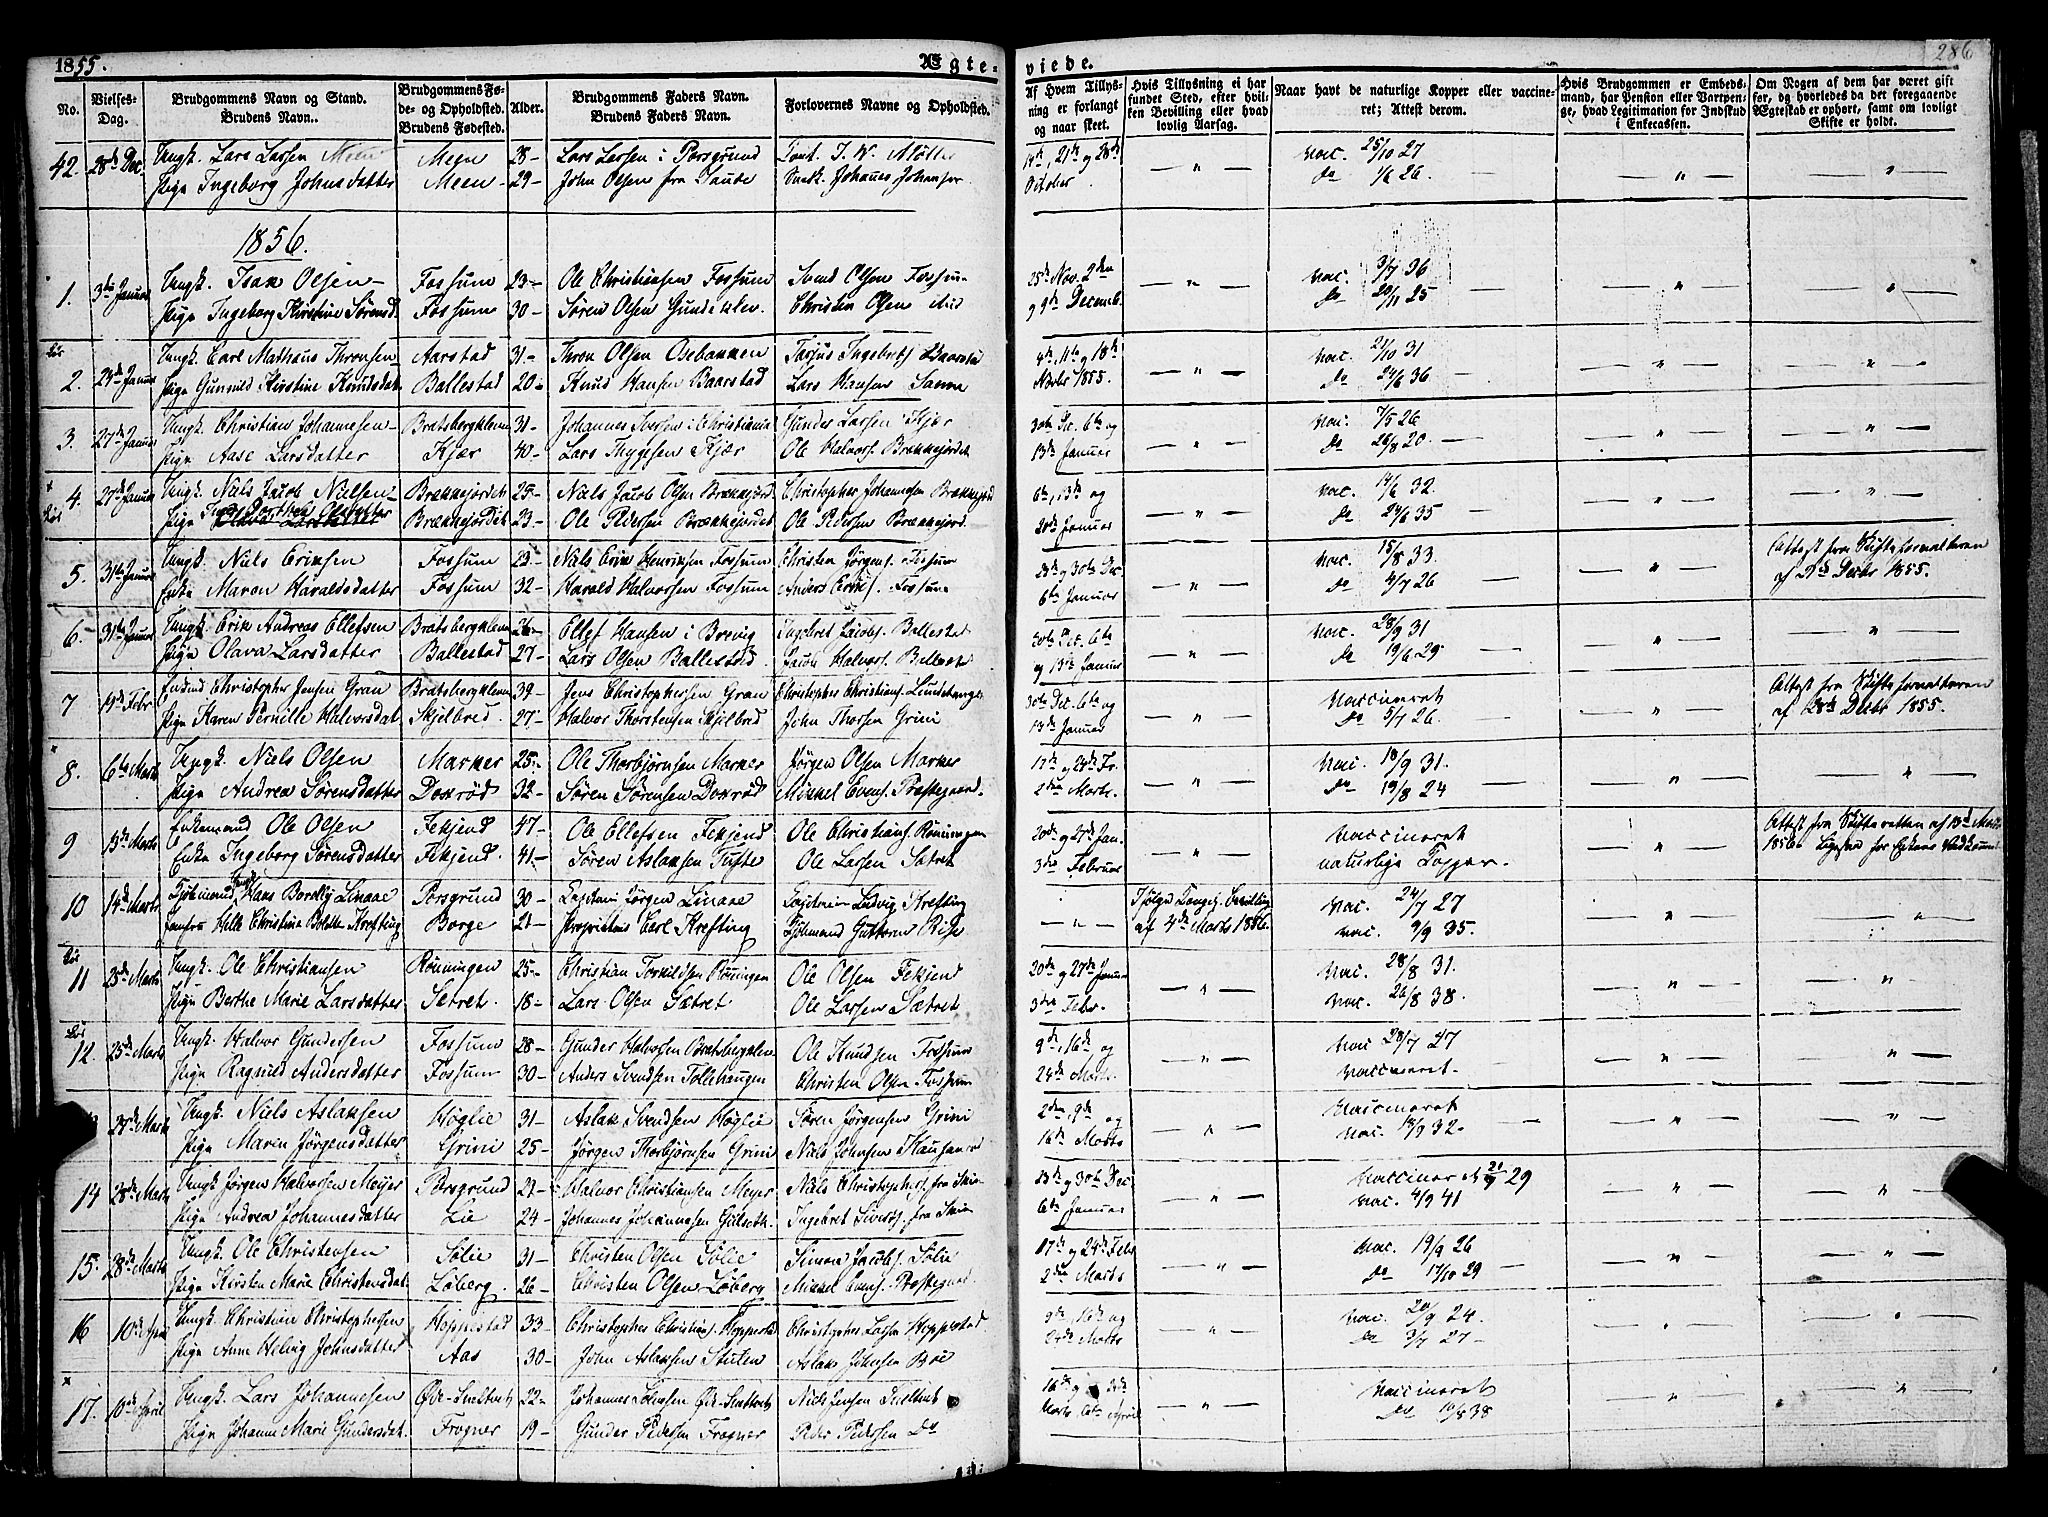 1855.
Ægte-
viede.
286
No.
Vielses-Dag.
Brudgommens Navn og Stand.
Brudens Navn.
Brudgommens Fø-
de- og Opholdsted.
Brudens Fødested.
Alder.
Brudgommens Faders Navn.
Brudens Faders Navn.
Forlovernes Navne og Opholdsted.
Af Hvem Tillys-
ning er forlangt
og naar skeet.
Hvis Tillysning ei har
fundet Sted, efter hvil-
ken Bevilling eller hvad
lovlig Aarsag.
Naar havt de naturlige Kopper eller vaccine-
ret; Attest derom.
Hvis Brudgommen er Embeds-
mand, har Pension eller Vartpen-
ge, hvad Legitimation for Indskud
i Enkecassen.
Om Nogen af dem har været gift
før, og hvorledes da det foregaaende
Ægtestab er ophørt, samt om lovligt
Skifte er holdt.
42. 28de Dec. Ungk. Lars Larsen Meen Meen 28 - Lars Larsen i Porsgrund J. W. Møller 14de, 21de og 28de Vac. 25/10 27
Pige Ingeborg Johnsdatter Meen 29 - John Olsen fra Saude Johannes Johansen October do 1/6 26.
1856.
1. 3die Januar Ungk. Isak Olsen Fossum 23 - Ole Christiansen Fossum Svend Olsen Fossum 25de Nov. 2den Vac. 3/7 36
Pige Ingeborg Kirstine Sørensd. Fossum 30 - Søren Olsen Gundeklev Christen Olsen ibid og 9de Decemb. do 20/11 25
2. 24de Januar Ungk. Carl Mathæus Thronsen Aarstad 31 - Thron Olsen Osebakken Tarjus Ingebrets. 4de, 11te og 18de Vac. 21/10 31
Pige Gunnild Kirstine Knudsdat. Ballestad 20 - Knud Hansen Baarstad Lars Hansen Sanna Novbr 1855. do 24/6 36
3. 27de Januar Ungk. Christian Johannesen Bratsbergkleven 31 - Johannes Iversen i Christiania Gunder Larsen Kjær 30te Dec. 6te og Vac. 7/5 26
Pige Aase Larsdatter Kjær 40 - Lars Thygesen Kjær Ole Halvors. Brækkejordet 13de Januar do 26/8 20.
4. 27de Januar Ungk. Niels Jacob Nielsen Brækkejordet 25 - Niels Jacob Olsen Brækkejord. Christopher Johannesen Brækkejord 6te, 13de og Vac. 14/6 32.
Pige Brækkejordet 23 - Ole Pedersen Brækkejordet Ole Pedersen Brækkejord. 20de Januar do 24/6 35
5. 31te Januar Ungk. Niels Eriksen Fossum 23 - Niels Erik Henriksen Fossum Christen Jørgens. Fossum 23de og 30te Dec. Vac. 15/8 33. Attest fra Skifteforvalteren
Enke Maren Haraldsdatter Fossum 32 - Harald Halvorsen Fossum Anders Eriks. Fossum 6te Januar do 4/7 26 af 21de Decbr 1855.
6. 31te Januar Ungk. Erik Andreas Ellefsen Bratsbergkleven 26 - Ellef Hansen i Brevig Ingebret Jacobs. Ballestad 30te Dec. 6te Vac. 28/9 31
Pige Olava Larsdatter Ballestad 27 - Lars Olsen Ballestad Jacob Halvors. Ballestad og 13de Januar do 19/6 29
7 19de Febr. Enkmd Christopher Jensen Gran Bratsbergkleven 39 - Jens Christophersen Gran Christopher Christians. Lundehaugen 30te Dec. 6te og Vaccineret Attest fra Skifteforvalteren
Pige Karen Pernille Halvorsdat. Skjelbred 27 - Halvor Thorstensen Skjelbred John Thorsen Grini 13de Januar do 5/7 26. af 28de Decbr 1855.
8. 6te Marts Ungk. Niels Olsen Marker 25 - Ole Thorbjørnsen Marker Jørgen Olsen Marker 17de og 24de Fr. Vac. 18/9 31.
Pige Andrea Sørensdatter Doxrød 32 - Søren Sørensen Doxrød Mikkel Evens. Præstegaard. 2den Marts. do 19/8 24
9 13de Marts Enkemand Ole Olsen Fekjend 47 - Ole Ellefsen Fekjend Ole Christians. Rønningen 20de og 27de Jan. Vaccineret Attest fra Skifteretten af 13de Marts
Enke Ingeborg Sørensdatter Fekjend 41 - Søren Aslaksen Tufte Ole Larsen Sætret 3die Februar naturlige Kopper. 1856
10 14de Marts Kjøbmand Ungk. Hans Bordby Linaae Porsgrund 30 - Capitain Jørgen Linaae Capitain Ludvig Krefting Ifølge Bevilling Vac. 24/7 27
Jomfru Christine Bolette Krefting Borge 21 - Proprietair Carl Krefting Kjøbmand Guttorm Riis af 4de Marts 1856. Vac. 9/9 35.
11 25de Marts Ungk. Ole Christiansen Rønningen 25 - Christian Torkildsen Rønningen Ole Olsen Fekjend 20de og 27de Januar Vac. 28/8 31.
Pige Berthe Marie Larsdatter Sætret. 18 - Lars Olsen Sætret Ole Larsen Sætret 3die Febr. Vac. 26/8 38.
12. 25de Marts Ungk. Halvor Gundersen Fossum 28 - Gunder Halvorsen Bratsbergklev. Ole Knudsen Fossum 9de, 16de og Vac 23/7 27
Pige Ragnild Andersdatter Fossum 30 - Anders Svendsen Tollehaugen Christen Olsen Fossum 24de Marts. Vaccineret.
27de Marts Ungk. Niels Aslaksen Høglie 31 - Aslak Svendsen Høglie Søren Jørgensen Grini 2den, 9de og Vaccineret
Pige Maren Jørgensdatter Grini 25 - Jørgen Thorbjørnsen Grini Niels Johnsen 16de Marts Vac. 18/9 32.
14 28de Marts Ungk. Jørgen Halvorsen Meyer Porsgrund 27 - Halvor Christiansen Meyer Niels Christophers. fra Skien 23de og 30te Dec Vaccineret 21/7 29
Pige Andrea Johannesdatter Lie 24 - Johannes Johannesen Gulseth. Ingebret Siverts. fra Skien 6te Januar Vac. 4/9 41
15. 28de Marts Ungk. Ole Christensen Sølie 31 - Christen Olsen Sølie Simon Jacobs. Sølie 17de og 24de Febr Vac. 19/9 26
Pige Kirsten Marie Christensdat. Løberg. 26 - Christen Olsen Løberg Mikkel Evens. Præstegaard. 2den Marts do 17/10 29
16 10de April Ungk. Christian Christophersen Hoppestad 33 - Christopher Christians. Hoppestad Christopher Larsen Hoppestad. 9de, 16de og Vac. 20/9 24.
Pige Anne Helvig Johnsdatter Aas 30 - John Aslaksen Stulen Aslak Johnsen Bøe 24de Marts do 3/7 27
17. 10de April Ungk. Lars Johannesen 22 - Johannes 16de og 24de Vaccineret
Pige Johanne Marie Gundersdat. Frogner 19 - Gunder Pedersen Frogner Peder Pedersen Do Marts 6te April do 10/8 38